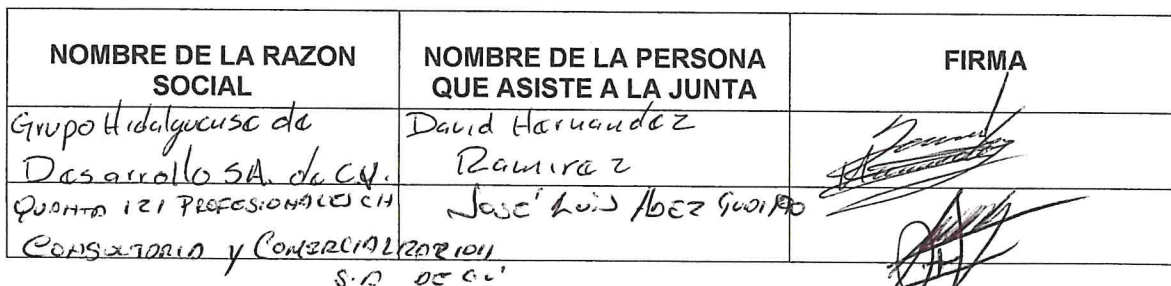 NOMBRE DE LA RAZON SOCIAL
NOMBRE DE LA PERSONA QUE ASISTE A LA JUNTA
FIRMA
Grupo Hidalguense de
Desarrollo SA. de C.V.
David Hernandez
Ramirez
QUANTA 121 PROFESIONALES EN
CONSULTORIA y COMERCIALIZACION
S.A DE CV
José Luis